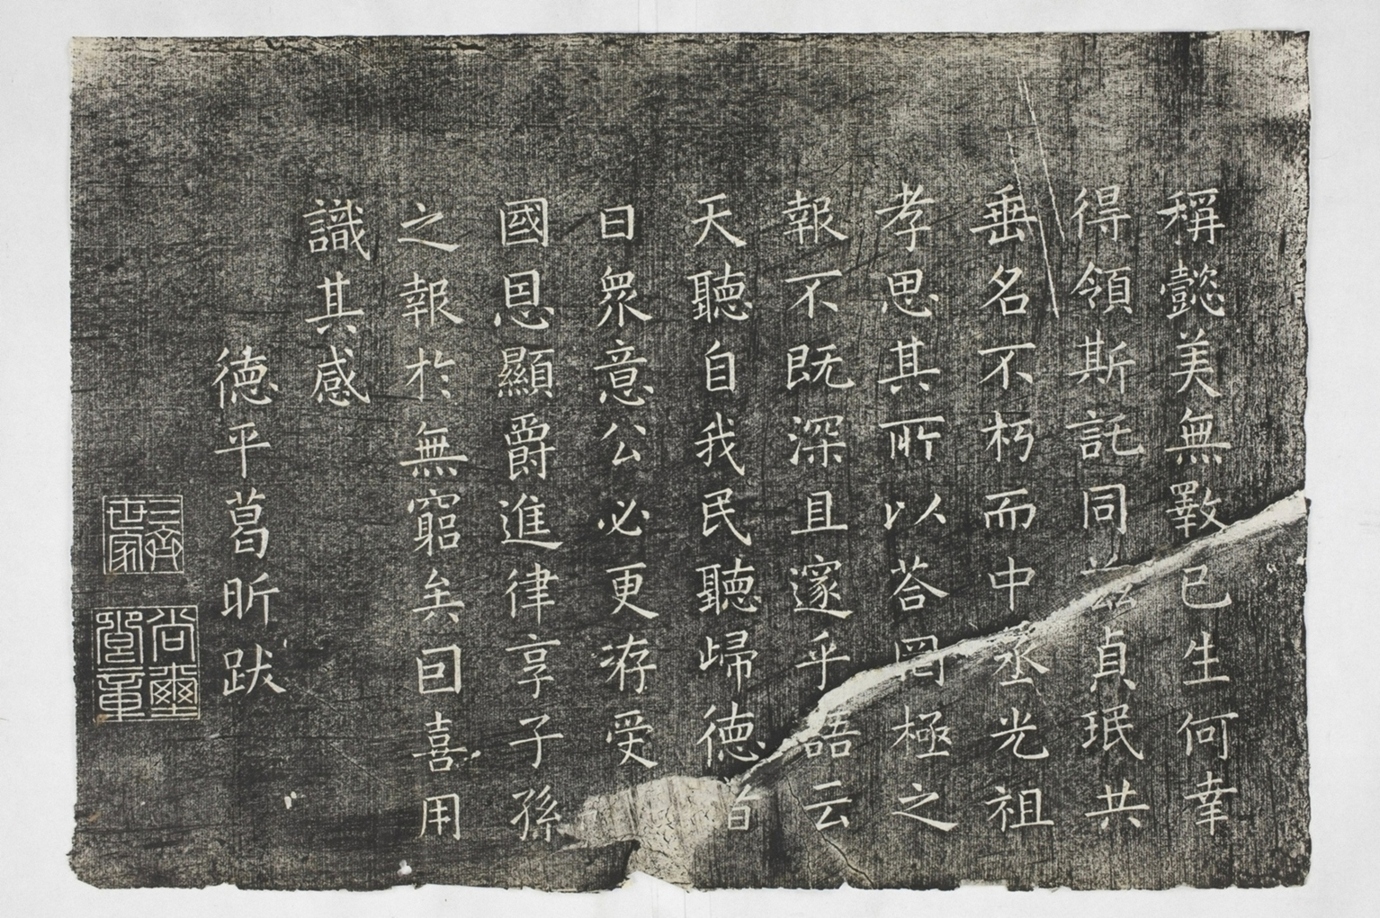 稱懿美無斁已生何幸
得領斯託同茲貞珉共
垂名不朽而中丞光祖
孝思其所以荅罔極之
報不既深且邃乎語云
天聽自我民聽歸德自
曰衆意公必更洊受
國恩顯爵進律享子孫
之報於無窮矣回喜用
識其感
德平葛昕跋
三齊世家
尚璽